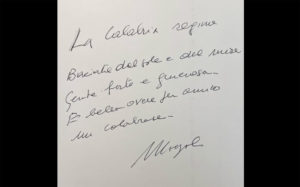 La Calabria regina
Baciata dal sole e dal mare
Gente forte e generosa.
È bello avere per amico
un calabrese.
Mogol